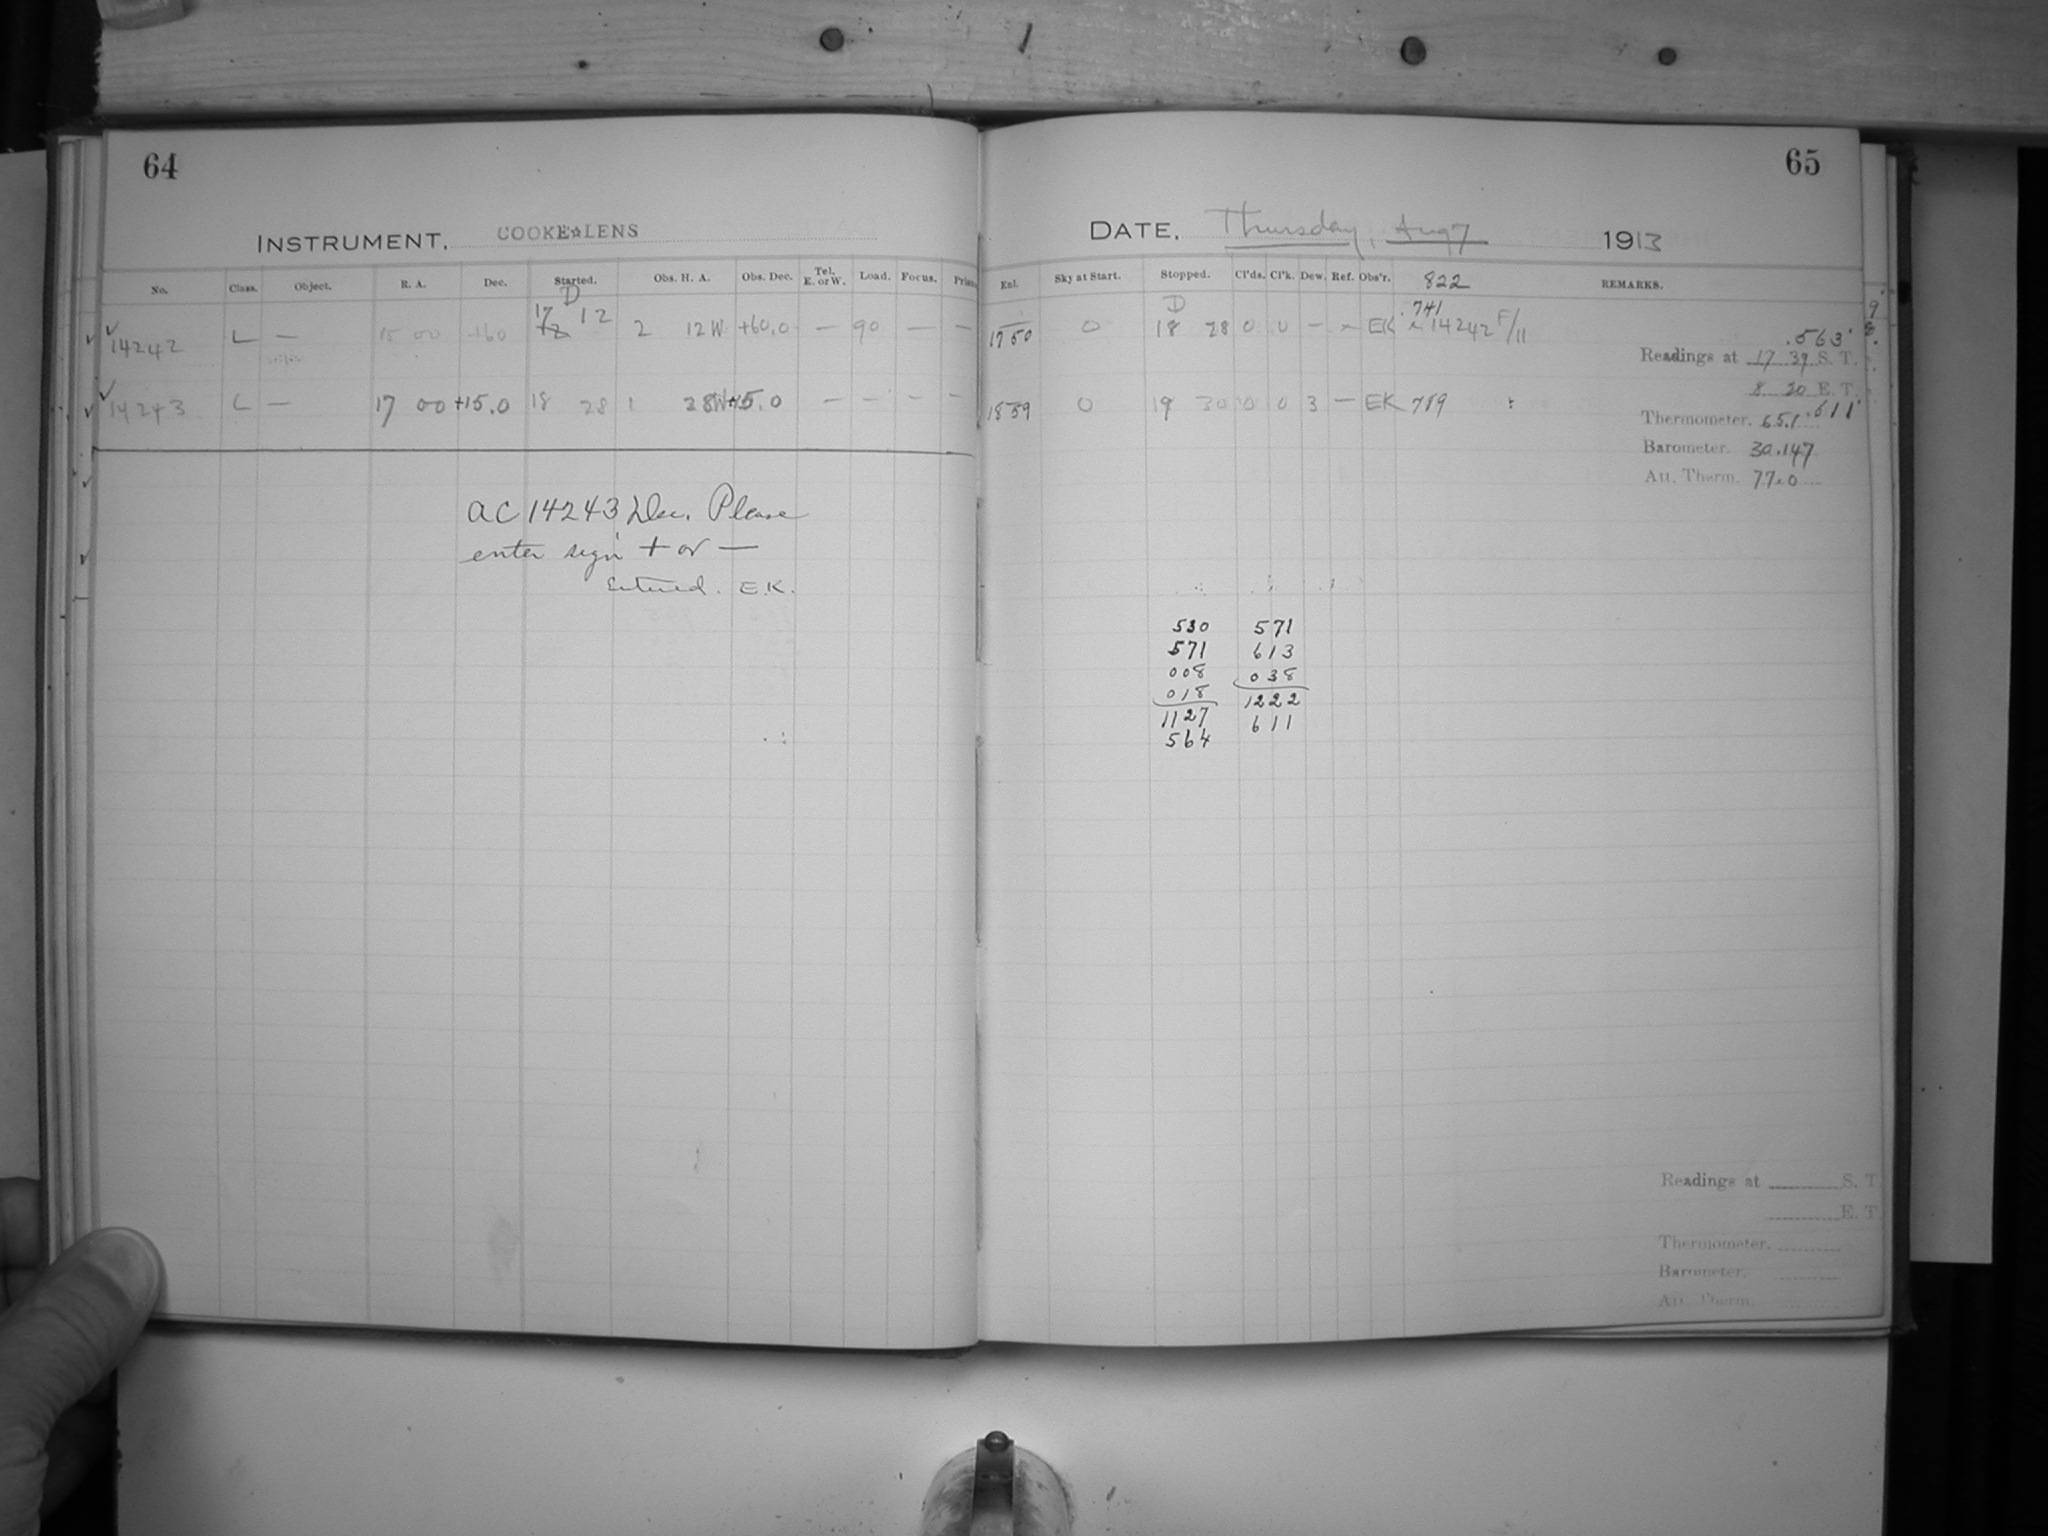 64
INSTRUMENT, COOKE LENS
No. Class. Object. R. A. Dec. Started. Obs. H. A. Obs. Dec. Tel. E. or W. Load. Focus.
D
14242 L — 15 00 +60 17 12 2 12W +60.0 — 90 — —
14243 L — 17 00 +15.0 18 28 1 28W +15.0 — — — —
AC 14243 Dec. Please
enter sign + or —
Entered. E.K.
65
DATE, Thursday, Aug 7 1913
Exl. Sky at Start. Stopped. Cl'ds. Cl'k. Dew. Ref. Obs'r. 822 REMARKS.
D .741
1750 0 18 28 0 0 — EK 14242 F/11 .563
Readings at 17 39 S. T.
8 20 E. T.
1859 0 19 30 0 0 3 — EK 789 .611
Thermometer. 65.1
Barometer. 30.147
Att. Therm. 77.0
530 571
571 613
008 038
018 1222
1127 611
564
Readings at S. T.
E. T.
Thermometer.
Barometer.
Att. Therm.